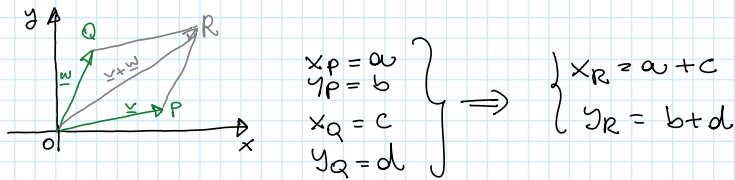 y
Q
R
w
v+w
v
P
O
x
x_P = a
y_P = b
x_Q = c
y_Q = d
⟹
x_R = a + c
y_R = b+d